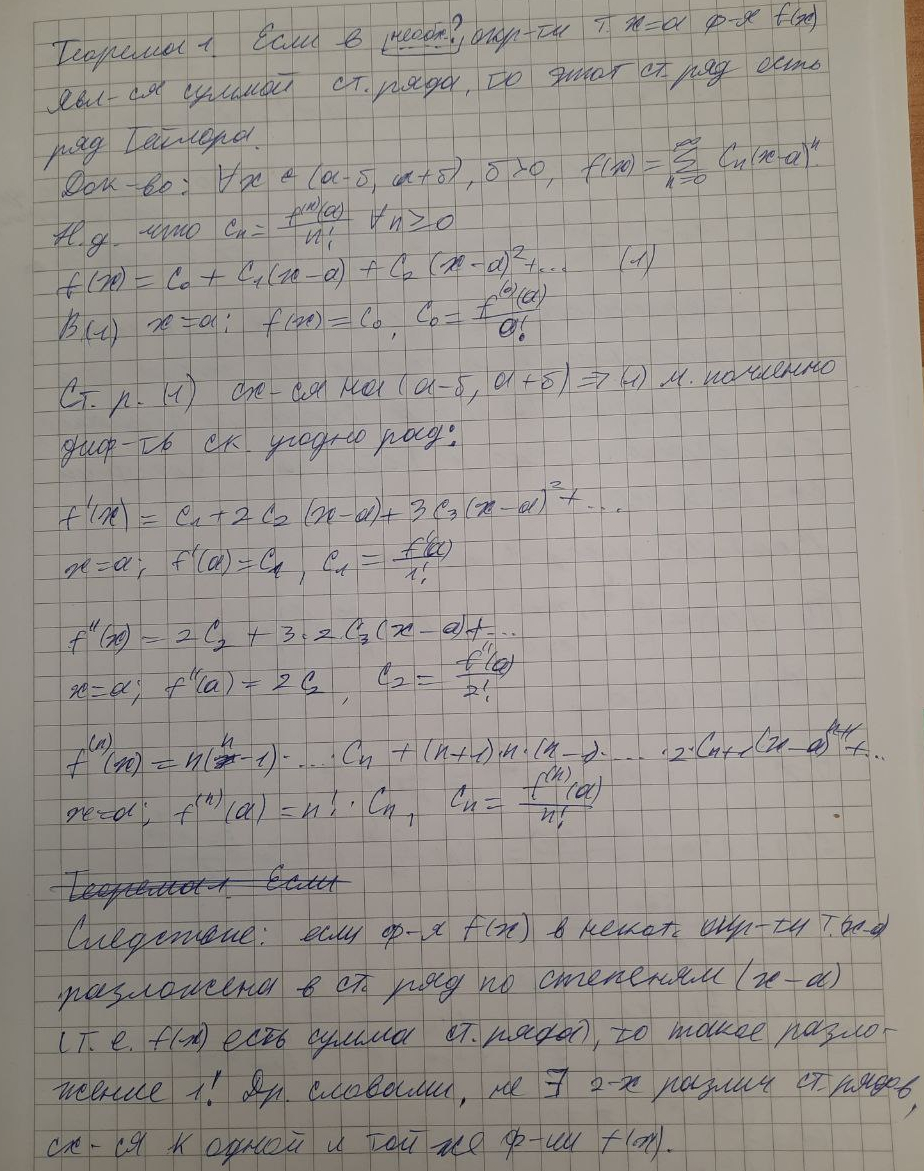 Теорема 1. Если в необх? окр-ти т. x=a ф-я f(x)
явл-ся суммой ст. ряда, то этот ст. ряд есть
ряд Тейлора.
Док-во: ∀x ∈ (a-δ, a+δ), δ>0, f(x) = ∑_{n=0}^{∞} Cn(x-a)^n
Н.д. что Cn = f^(n)(a)/n! ∀n≥0
f(x) = C₀ + C₁(x-a) + C₂(x-a)² + ... (1)
В(1) x=a: f(x) = C₀, C₀ = f^(0)(a)/0!
Ст. р. (1) сх-ся на (a-δ, a+δ) ⇒ (1) м. почленно
диф-ть ск. угодно раз:
f'(x) = C₁ + 2C₂(x-a) + 3C₃(x-a)² + ...
x=a; f'(a) = C₁, C₁ = f'(a)/1!
f''(x) = 2C₂ + 3·2C₃(x-a) + ...
x=a; f''(a) = 2C₂, C₂ = f''(a)/2!
f^(n)(x) = n(n-1)· ... ·Cn + (n+1)·n·(n-1)· ... ·2·Cn+1(x-a)^n+1 + ...
x=a; f^(n)(a) = n!·Cn, Cn = f^(n)(a)/n!
Теорема 1. Если
Следствие: если ф-я f(x) в некот. окр-ти т. x=a
разложена в ст. ряд по степеням (x-a)
(т.е. f(x) есть сумма ст. ряда), то такое разло-
жение 1! Др. словами, не ∃ 2-х различ ст. рядов,
сх-ся к одной и той же ф-ии f(x).